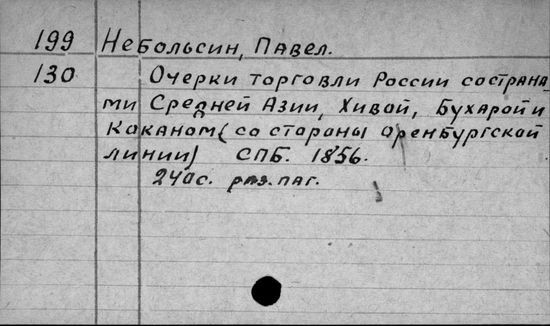 199 Небольсин, Павел.
130 Очерки торговли России со страна-
ми Средней Азии, Хивой, Бухарой и
Коканом (со стороны Оренбургской
линии) СПБ. 1856.
240с. раз.паг.